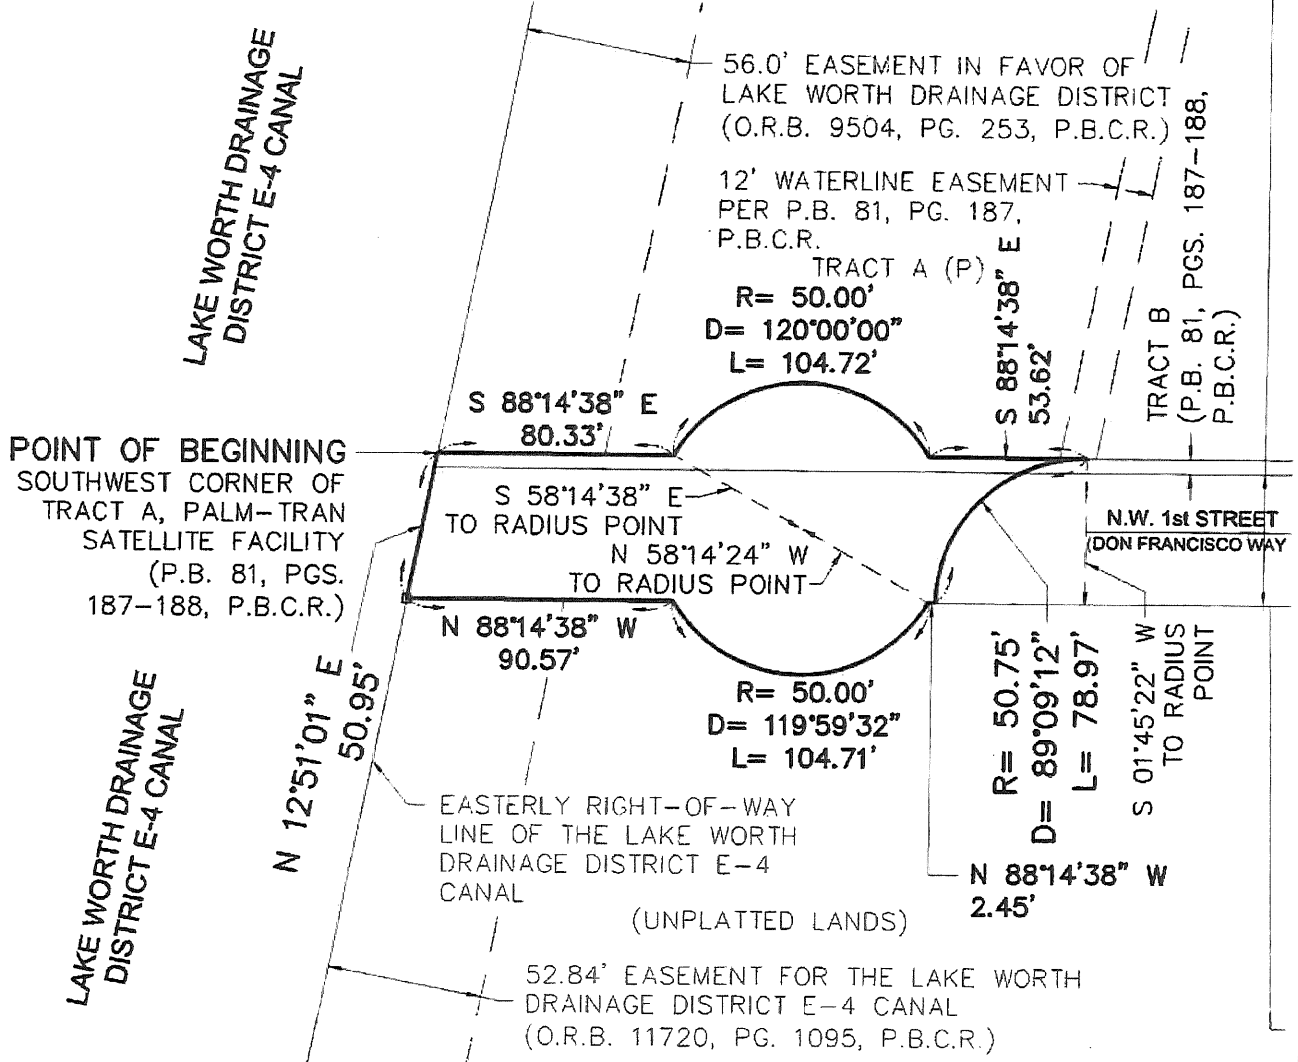 LAKE WORTH DRAINAGE
DISTRICT E-4 CANAL
56.0' EASEMENT IN FAVOR OF
LAKE WORTH DRAINAGE DISTRICT
(O.R.B. 9504, PG. 253, P.B.C.R.)
12' WATERLINE EASEMENT
PER P.B. 81, PG. 187,
P.B.C.R.
TRACT A (P)
R= 50.00'
D= 120°00'00"
L= 104.72'
S 88°14'38" E
53.62'
TRACT B
(P.B. 81, PGS. 187-188,
P.B.C.R.)
S 88°14'38" E
80.33'
POINT OF BEGINNING
SOUTHWEST CORNER OF
TRACT A, PALM-TRAN
SATELLITE FACILITY
(P.B. 81, PGS.
187-188, P.B.C.R.)
S 58°14'38" E
TO RADIUS POINT
N 58°14'24" W
TO RADIUS POINT
N.W. 1st STREET
(DON FRANCISCO WAY
N 88°14'38" W
90.57'
N 12°51'01" E
50.95'
R= 50.00'
D= 119°59'32"
L= 104.71'
R= 50.75'
D= 89°09'12"
L= 78.97'
S 01°45'22" W
TO RADIUS
POINT
LAKE WORTH DRAINAGE
DISTRICT E-4 CANAL
EASTERLY RIGHT-OF-WAY
LINE OF THE LAKE WORTH
DRAINAGE DISTRICT E-4
CANAL
N 88°14'38" W
2.45'
(UNPLATTED LANDS)
52.84' EASEMENT FOR THE LAKE WORTH
DRAINAGE DISTRICT E-4 CANAL
(O.R.B. 11720, PG. 1095, P.B.C.R.)